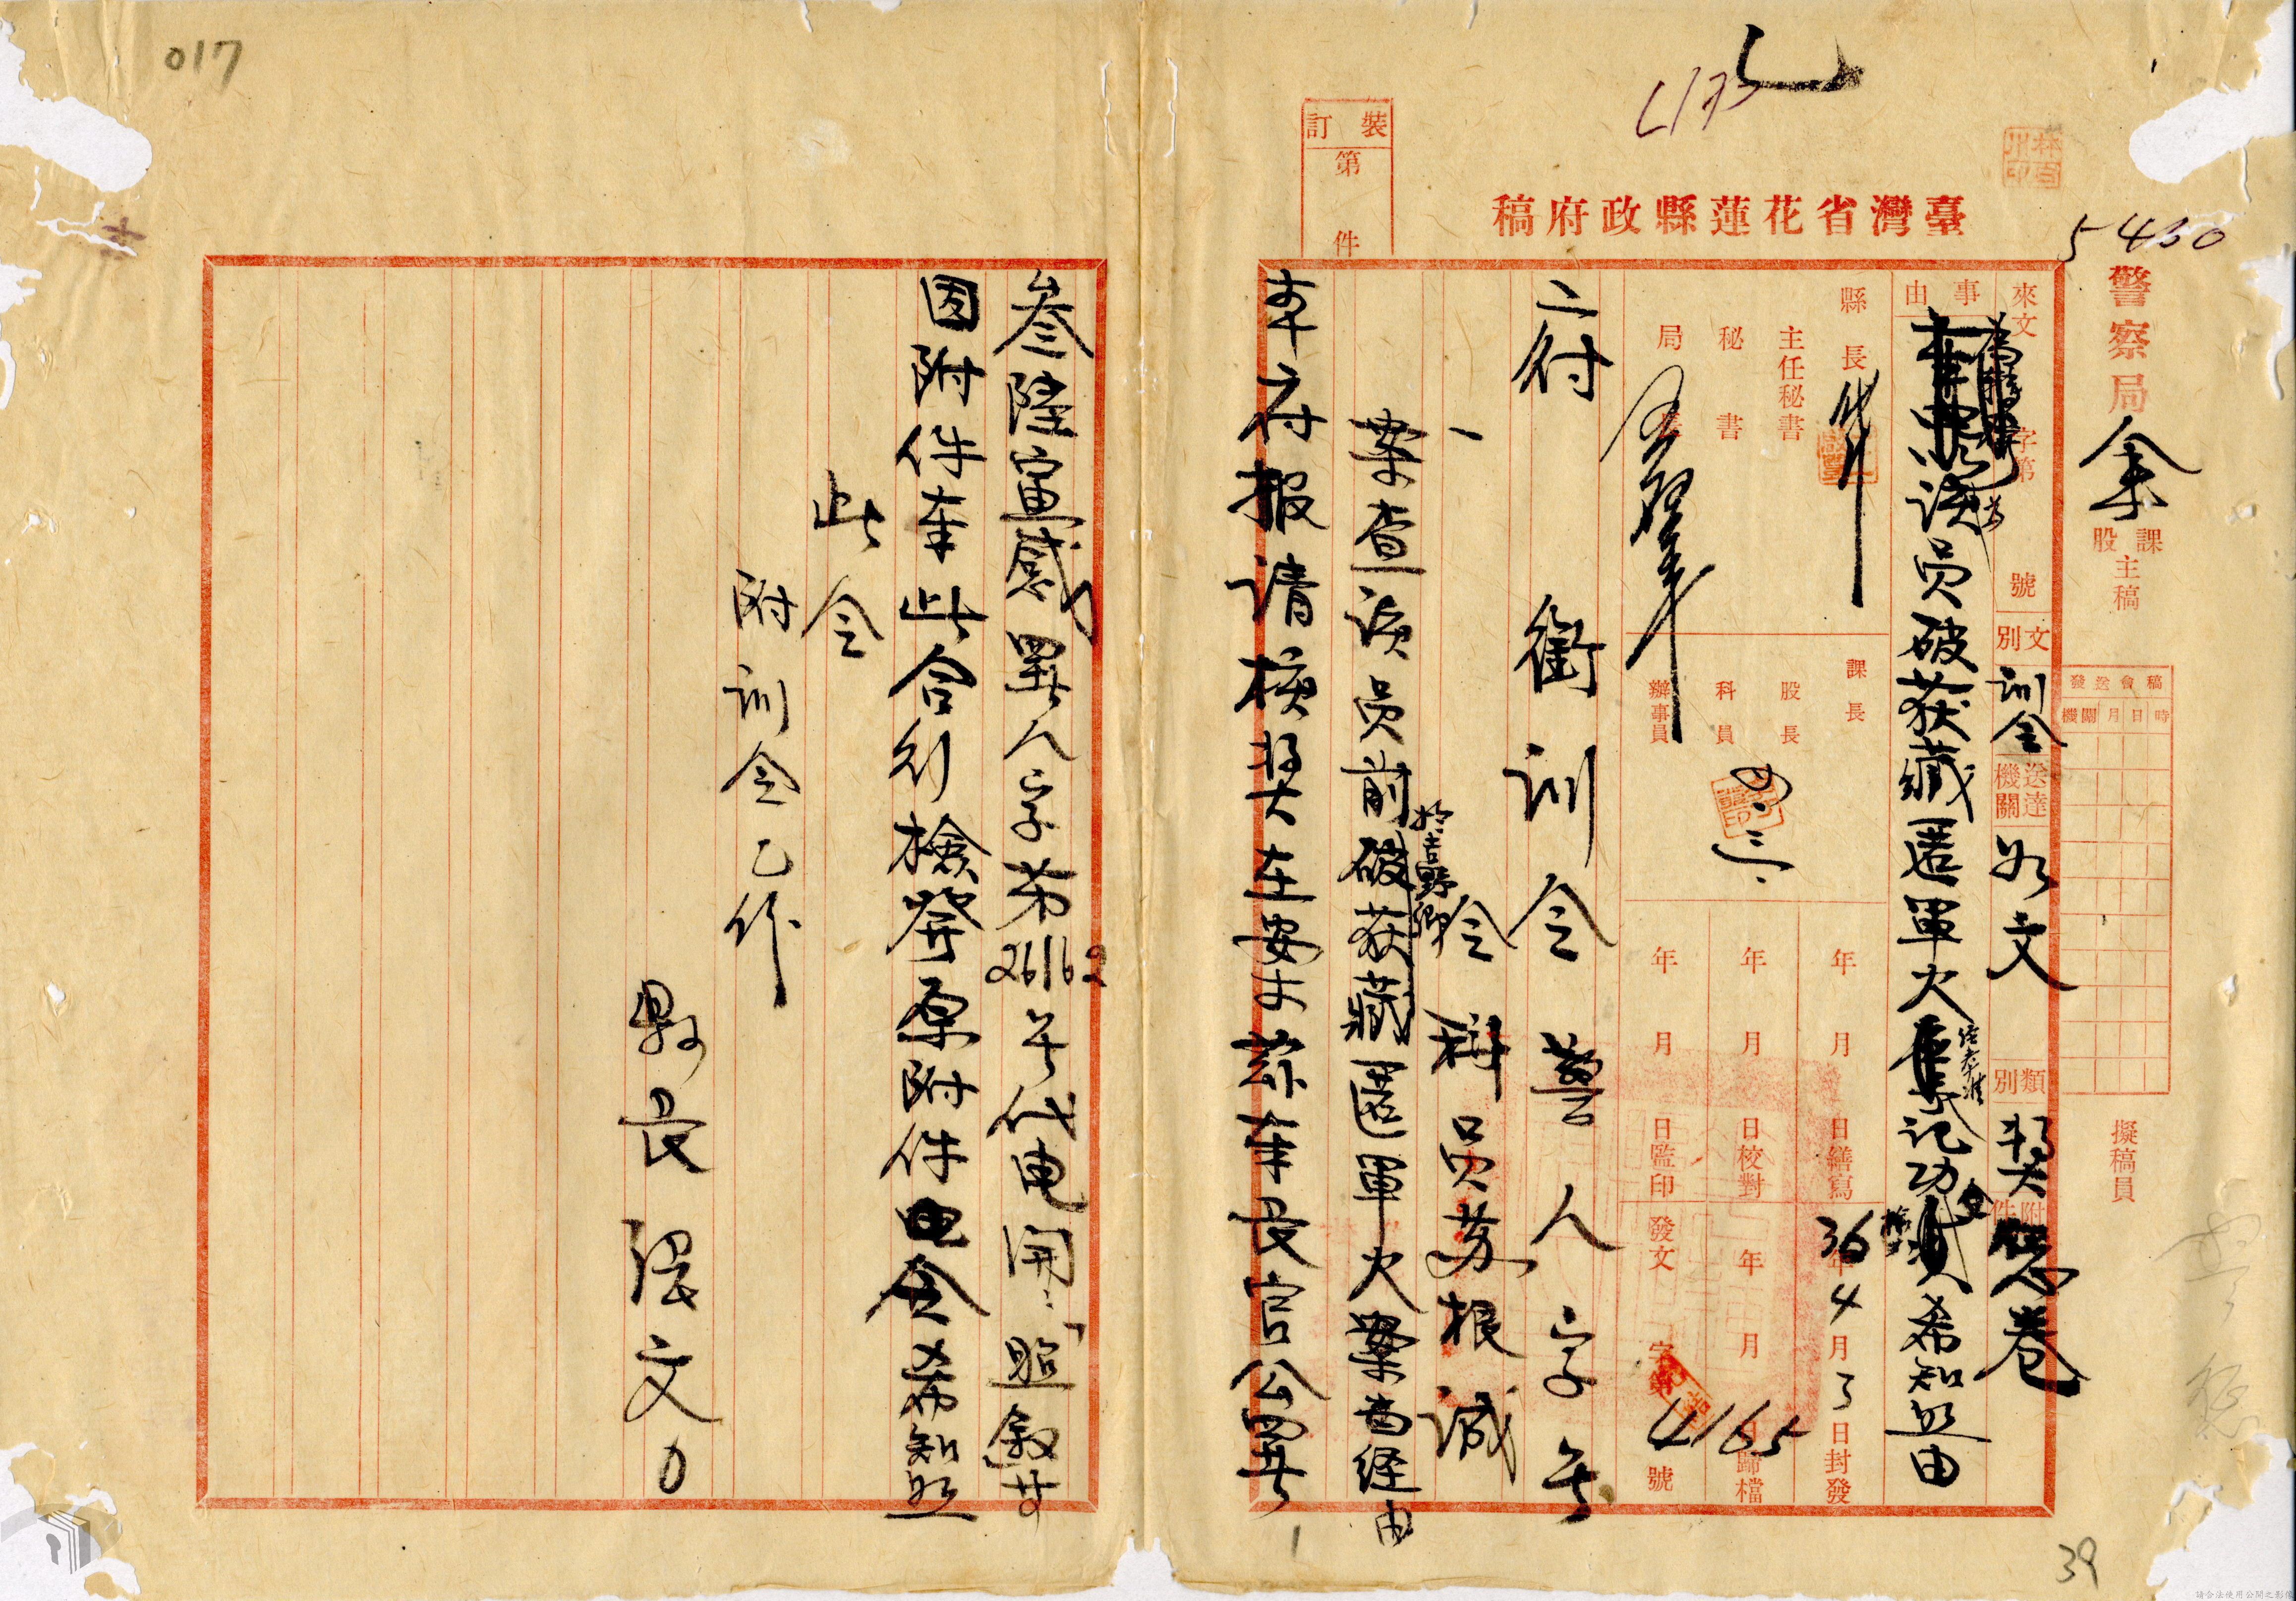 017
5460
裝訂
第 件
臺灣省花蓮縣政府稿
警察局
課
股
主稿
擬稿員
稿會送發
時日月機關
來文 字第 號
文別
訓令
送達機關
如文
類別
附件
獎懲卷
事由
該員破获藏匿軍火
记功
希知照由
縣長
主任秘書
秘書
局長
課長
股長
科員
辦事員
四.三.
年 月 日繕寫
年 月 日校對
年 月 日監印
36年4月3日封發
年 月 日歸檔
發文 字第 4165 號
府銜訓令 警人字 号
令科員苏根誠
一
案查该员前破获藏匿軍火案当经由
於吉野鄉
本府报请核奖在案 兹奉長官公署
叁陸寅感署人字第26162号代电開:「照敘廿
因附件奉此合行檢發原附件令希知照
此令
附訓令乙件
縣長張文〇
39
1
請合法使用公開之影像